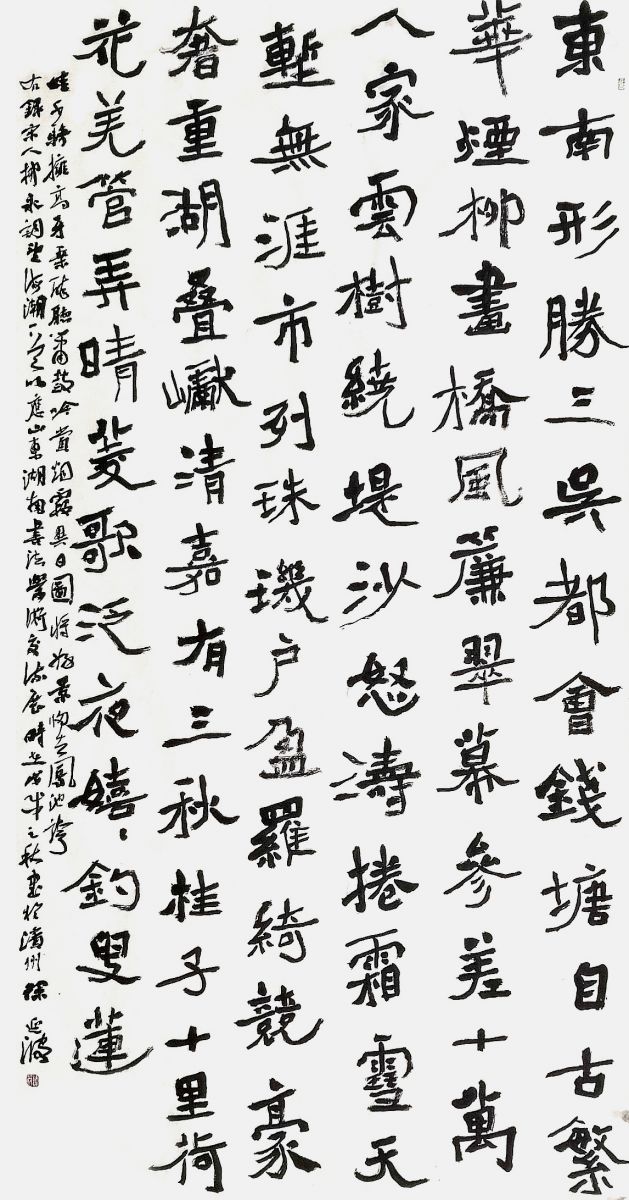 東南形勝三吳都會錢塘自古繁
華煙柳畫橋風簾翠幕參差十萬
人家雲樹繞堤沙怒濤捲霜雪天
塹無涯市列珠璣戶盈羅綺競豪
奢重湖疊巘清嘉有三秋桂子十里荷
花羌管弄晴菱歌泛夜嬉〻釣叟蓮
娃千騎擁高牙乘醉聽簫鼓吟賞烟霞異日圖將好景歸去鳳池誇
右錄宋人柳永詞望海潮以應山東湖南書法學術交流展時在之秋書於州徐延波